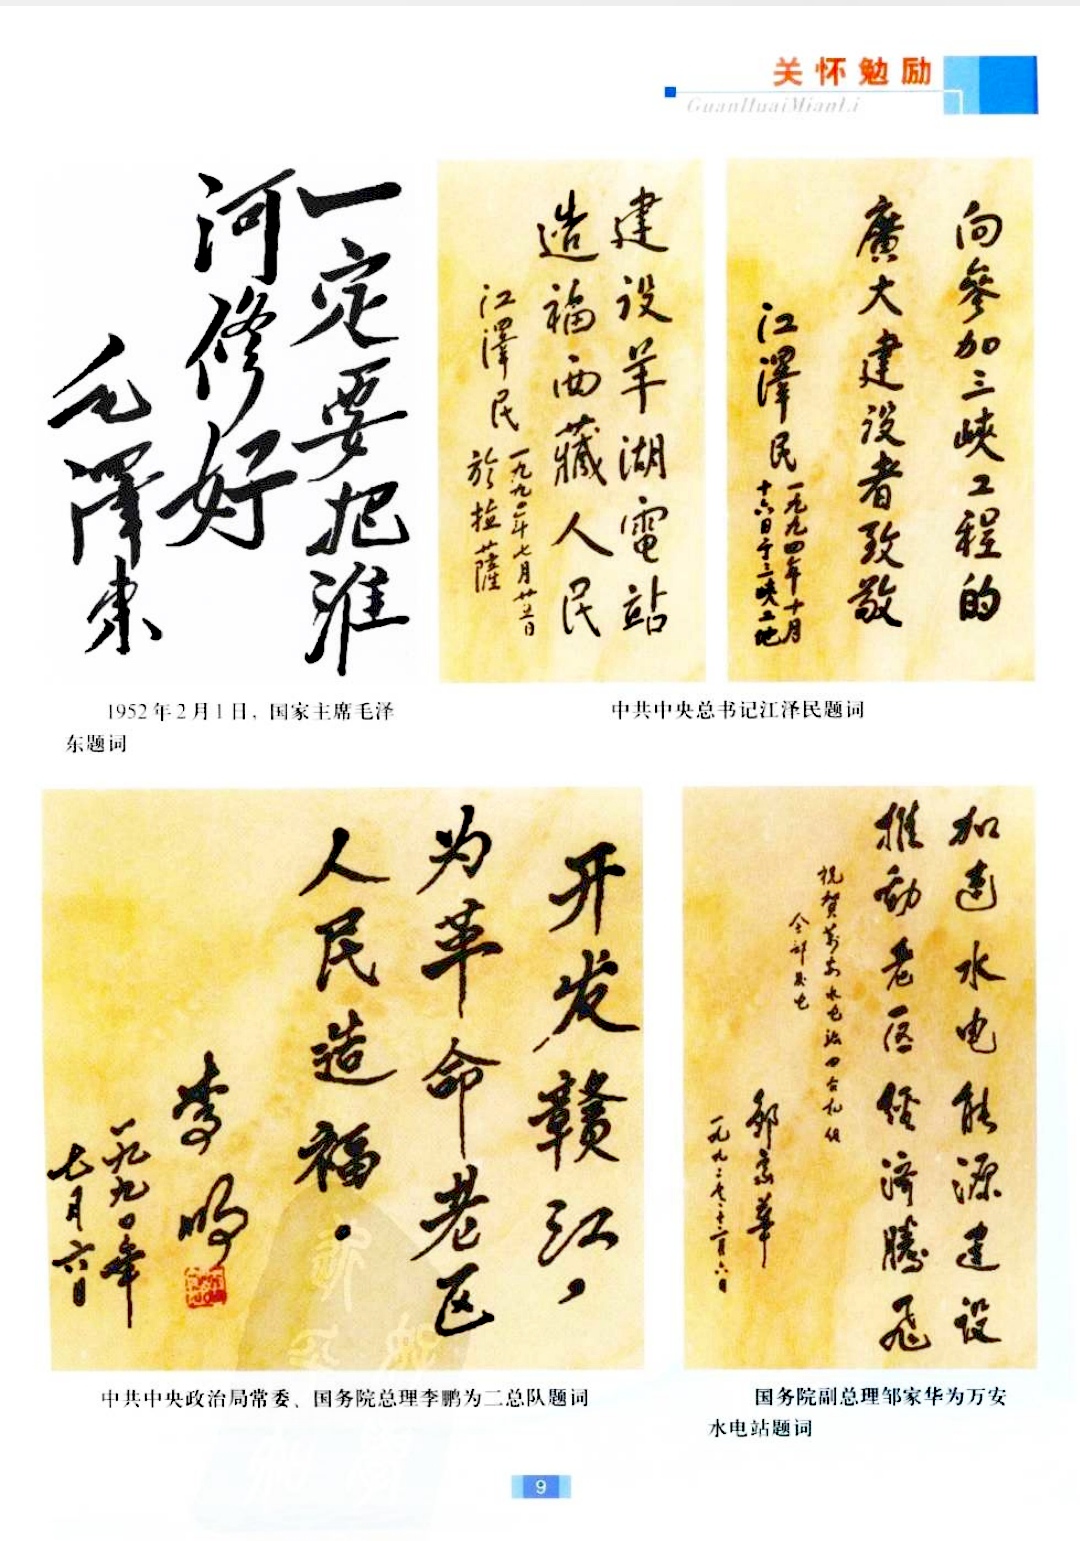 关怀勉励
GuanHuaiMianLi
一定要把淮
河修好
毛澤东
1952年2月1日，国家主席毛泽
东题词
建设羊湖電站
造福西藏人民
江澤民
一九九二年七月廿五日
於拉薩
向參加三峡工程的
廣大建设者致敬
江澤民
一九九四年十月
十六日于三峡工地
中共中央总书记江泽民题词
开发赣江，
为革命老区
人民造福．
李鹏
一九九〇年
七月六日
中共中央政治局常委、国务院总理李鹏为二总队题词
加速水电能源建设
推动老区经济腾飞
祝贺萬安水电站四台机组
全部发电
邹家華
国务院副总理邹家华为万安
水电站题词
9